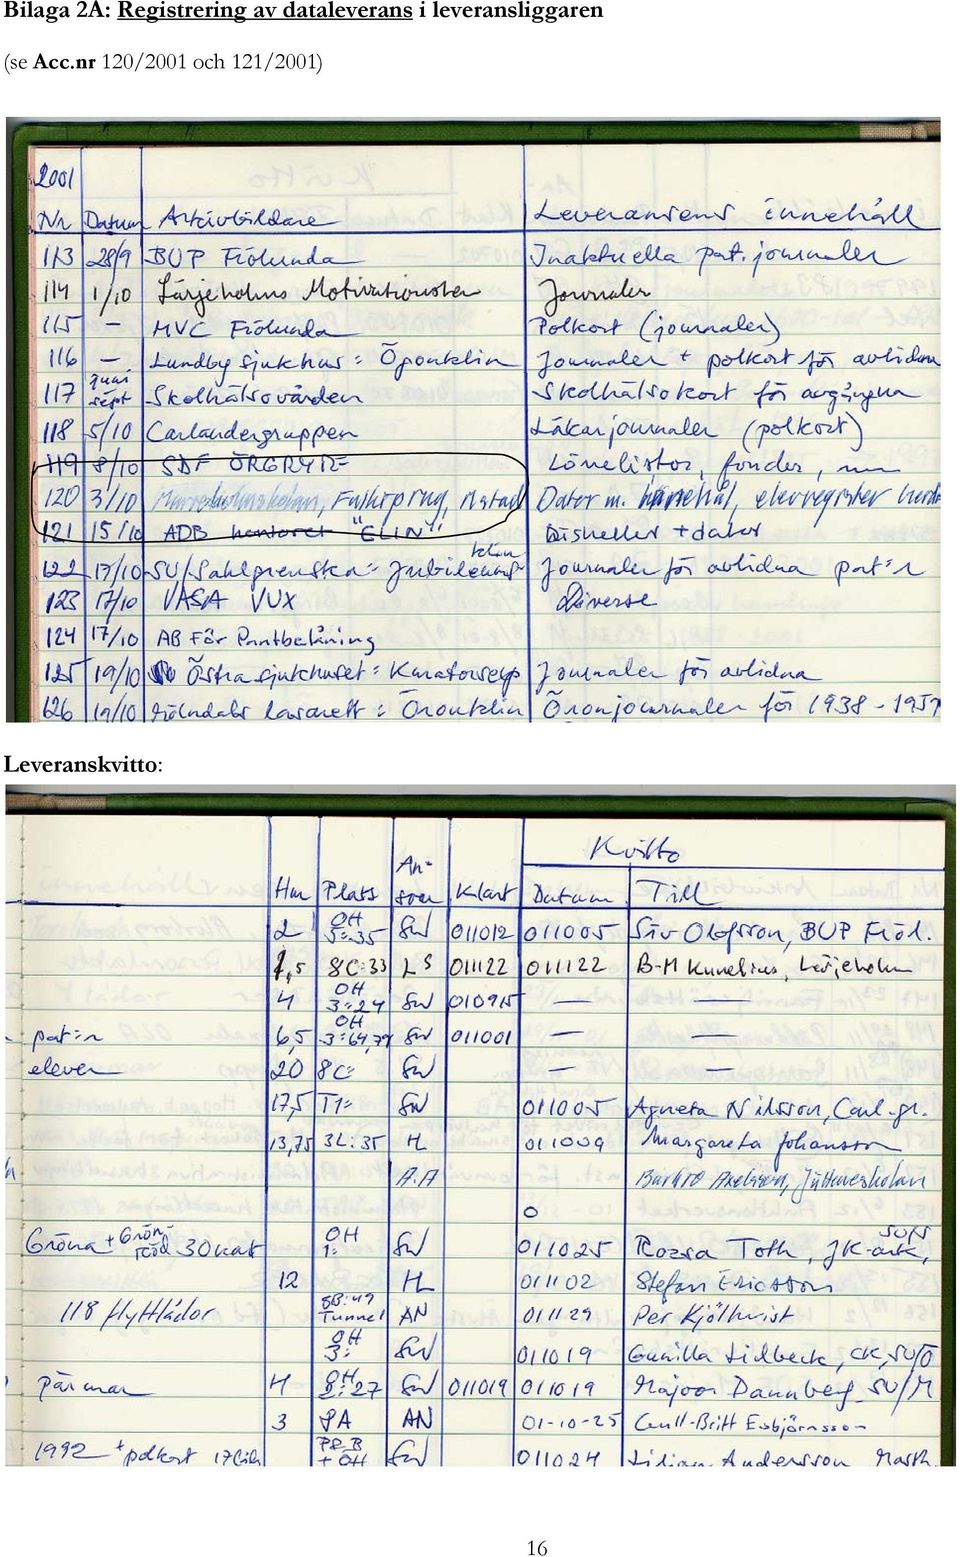 Bilaga 2A: Registrering av dataleverans i leveransliggaren
(se Acc.nr 120/2001 och 121/2001)
2001
Nr Datum Arkivbildare Leveransens innehåll
113 28/9 BUP Frölunda Inaktuella pat. journaler
114 1/10 Lärjeholms Motivationshem Journaler
115 - MVC Frölunda Polkort (journaler)
116 - Lundby sjukhus: Ögonklin Journaler + polkort för avlidna
117 juni sept Skolhälsovården Skolhälsokort för avgångna
118 5/10 Carlandergruppen Läkarjournaler (polkort)
119 8/10 SDF ÖRGRYTE Lönelistor, fonder, mm
120 3/10 Dator m. elevregister
121 15/10 ADB kontoret "ELIN" Disketter + dator
122 17/10 SU/Sahlgrenska: Jubileums klin Journaler för avlidna pat:r
123 17/10 VASA VUX Diverse
124 17/10 AB För Pantbelåning
125 19/10 Östra sjukhuset: Kuratorsexp Journaler för avlidna
126 19/10 Mölndals lasarett: Öronklin Öronjournaler för 1938 - 1957
Leveranskvitto:
Kvitto
Hm Plats An- svar Klart Datum Till
2 OH 5:35 SW 011012 011005 Siv Olofsson, BUP Fröl.
1,5 8C:33 LS 011122 011122 B-M Kunelius, Lärjeholm
4 OH 3:24 SW 010915 —
pat:r 6,5 OH 3:64,79 SW 011001 — —
elever 20 8C: SW — —
17,5 T1: SW 011005 Agneta Nilsson, Carl.gr.
13,75 3L:35 HL 011009 Margareta Johansson
A.A Axelsson,
0
Gröna + Grön- röd 30 kat OH 1: SW 011025 Rozsa Toth, JK-ark, SU/S
12 HL 011102 Stefan Ericsson
118 flyttlådor 5B:49 Tunnel AN 011129 Per Kjölhvist
OH 3: SW 011019 Gunilla Lidbeck, CK, SU/Ö
Pärmar 4 OH 2:27 SW 011019 011019 Majvor Dannberg SU/M
3 PA AN 01-10-25 Gull-Britt Esbjörnsson
1992 + polkort + OH SW 011024 Lilian Andersson
16